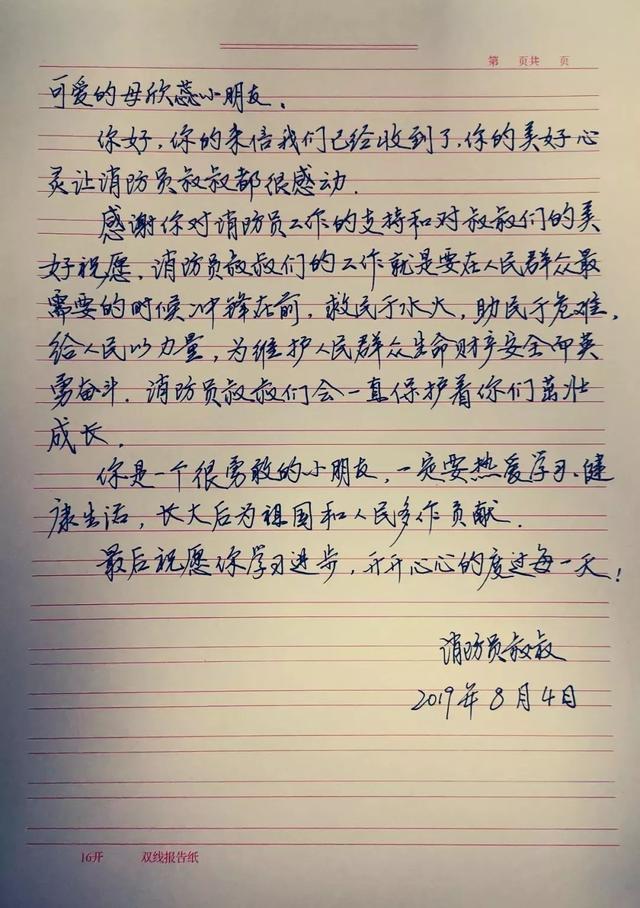 第 页共 页
可爱的母欣蕊小朋友.
你好,你的来信我们已经收到了,你的美好心
灵让消防员叔叔都很感动.
感谢你对消防员工作的支持和对叔叔们的美
好祝愿.消防员叔叔们的工作就是要在人民群众最
需要的时候冲锋在前,救民于水火,助民于危难,
给人民以力量,为维护人民群众生命财产安全而英
勇奋斗.消防员叔叔们会一直保护着你们茁壮
成长.
你是一个很勇敢的小朋友,一定要热爱学习、健
康生活,长大后为祖国和人民多作贡献.
最后祝愿你学习进步,开开心心的度过每一天!
消防员叔叔
2019年8月4日
16开 双线报告纸